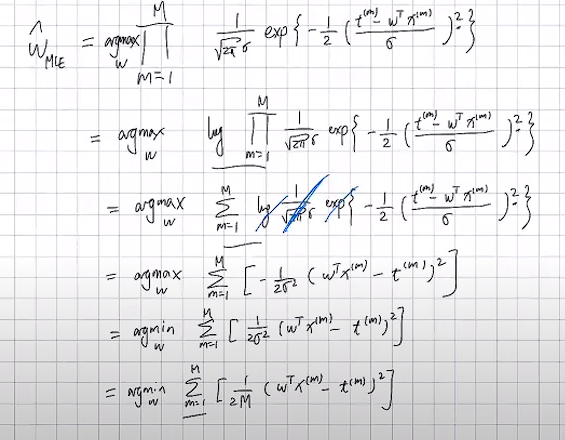 ŵ_MLE = argmax_w ∏_{m=1}^{M} 1/(√(2π) σ) exp{ -1/2 ( (t^(m) - w^T x^(m)) / σ )^2 }
= argmax_w log ∏_{m=1}^{M} 1/(√(2π) σ) exp{ -1/2 ( (t^(m) - w^T x^(m)) / σ )^2 }
= argmax_w ∑_{m=1}^{M} log 1/(√(2π) σ) exp{ -1/2 ( (t^(m) - w^T x^(m)) / σ )^2 }
= argmax_w ∑_{m=1}^{M} [ -1/(2σ^2) ( w^T x^(m) - t^(m) )^2 ]
= argmin_w ∑_{m=1}^{M} [ 1/(2σ^2) ( w^T x^(m) - t^(m) )^2 ]
= argmin_w ∑_{m=1}^{M} [ 1/(2M) ( w^T x^(m) - t^(m) )^2 ]